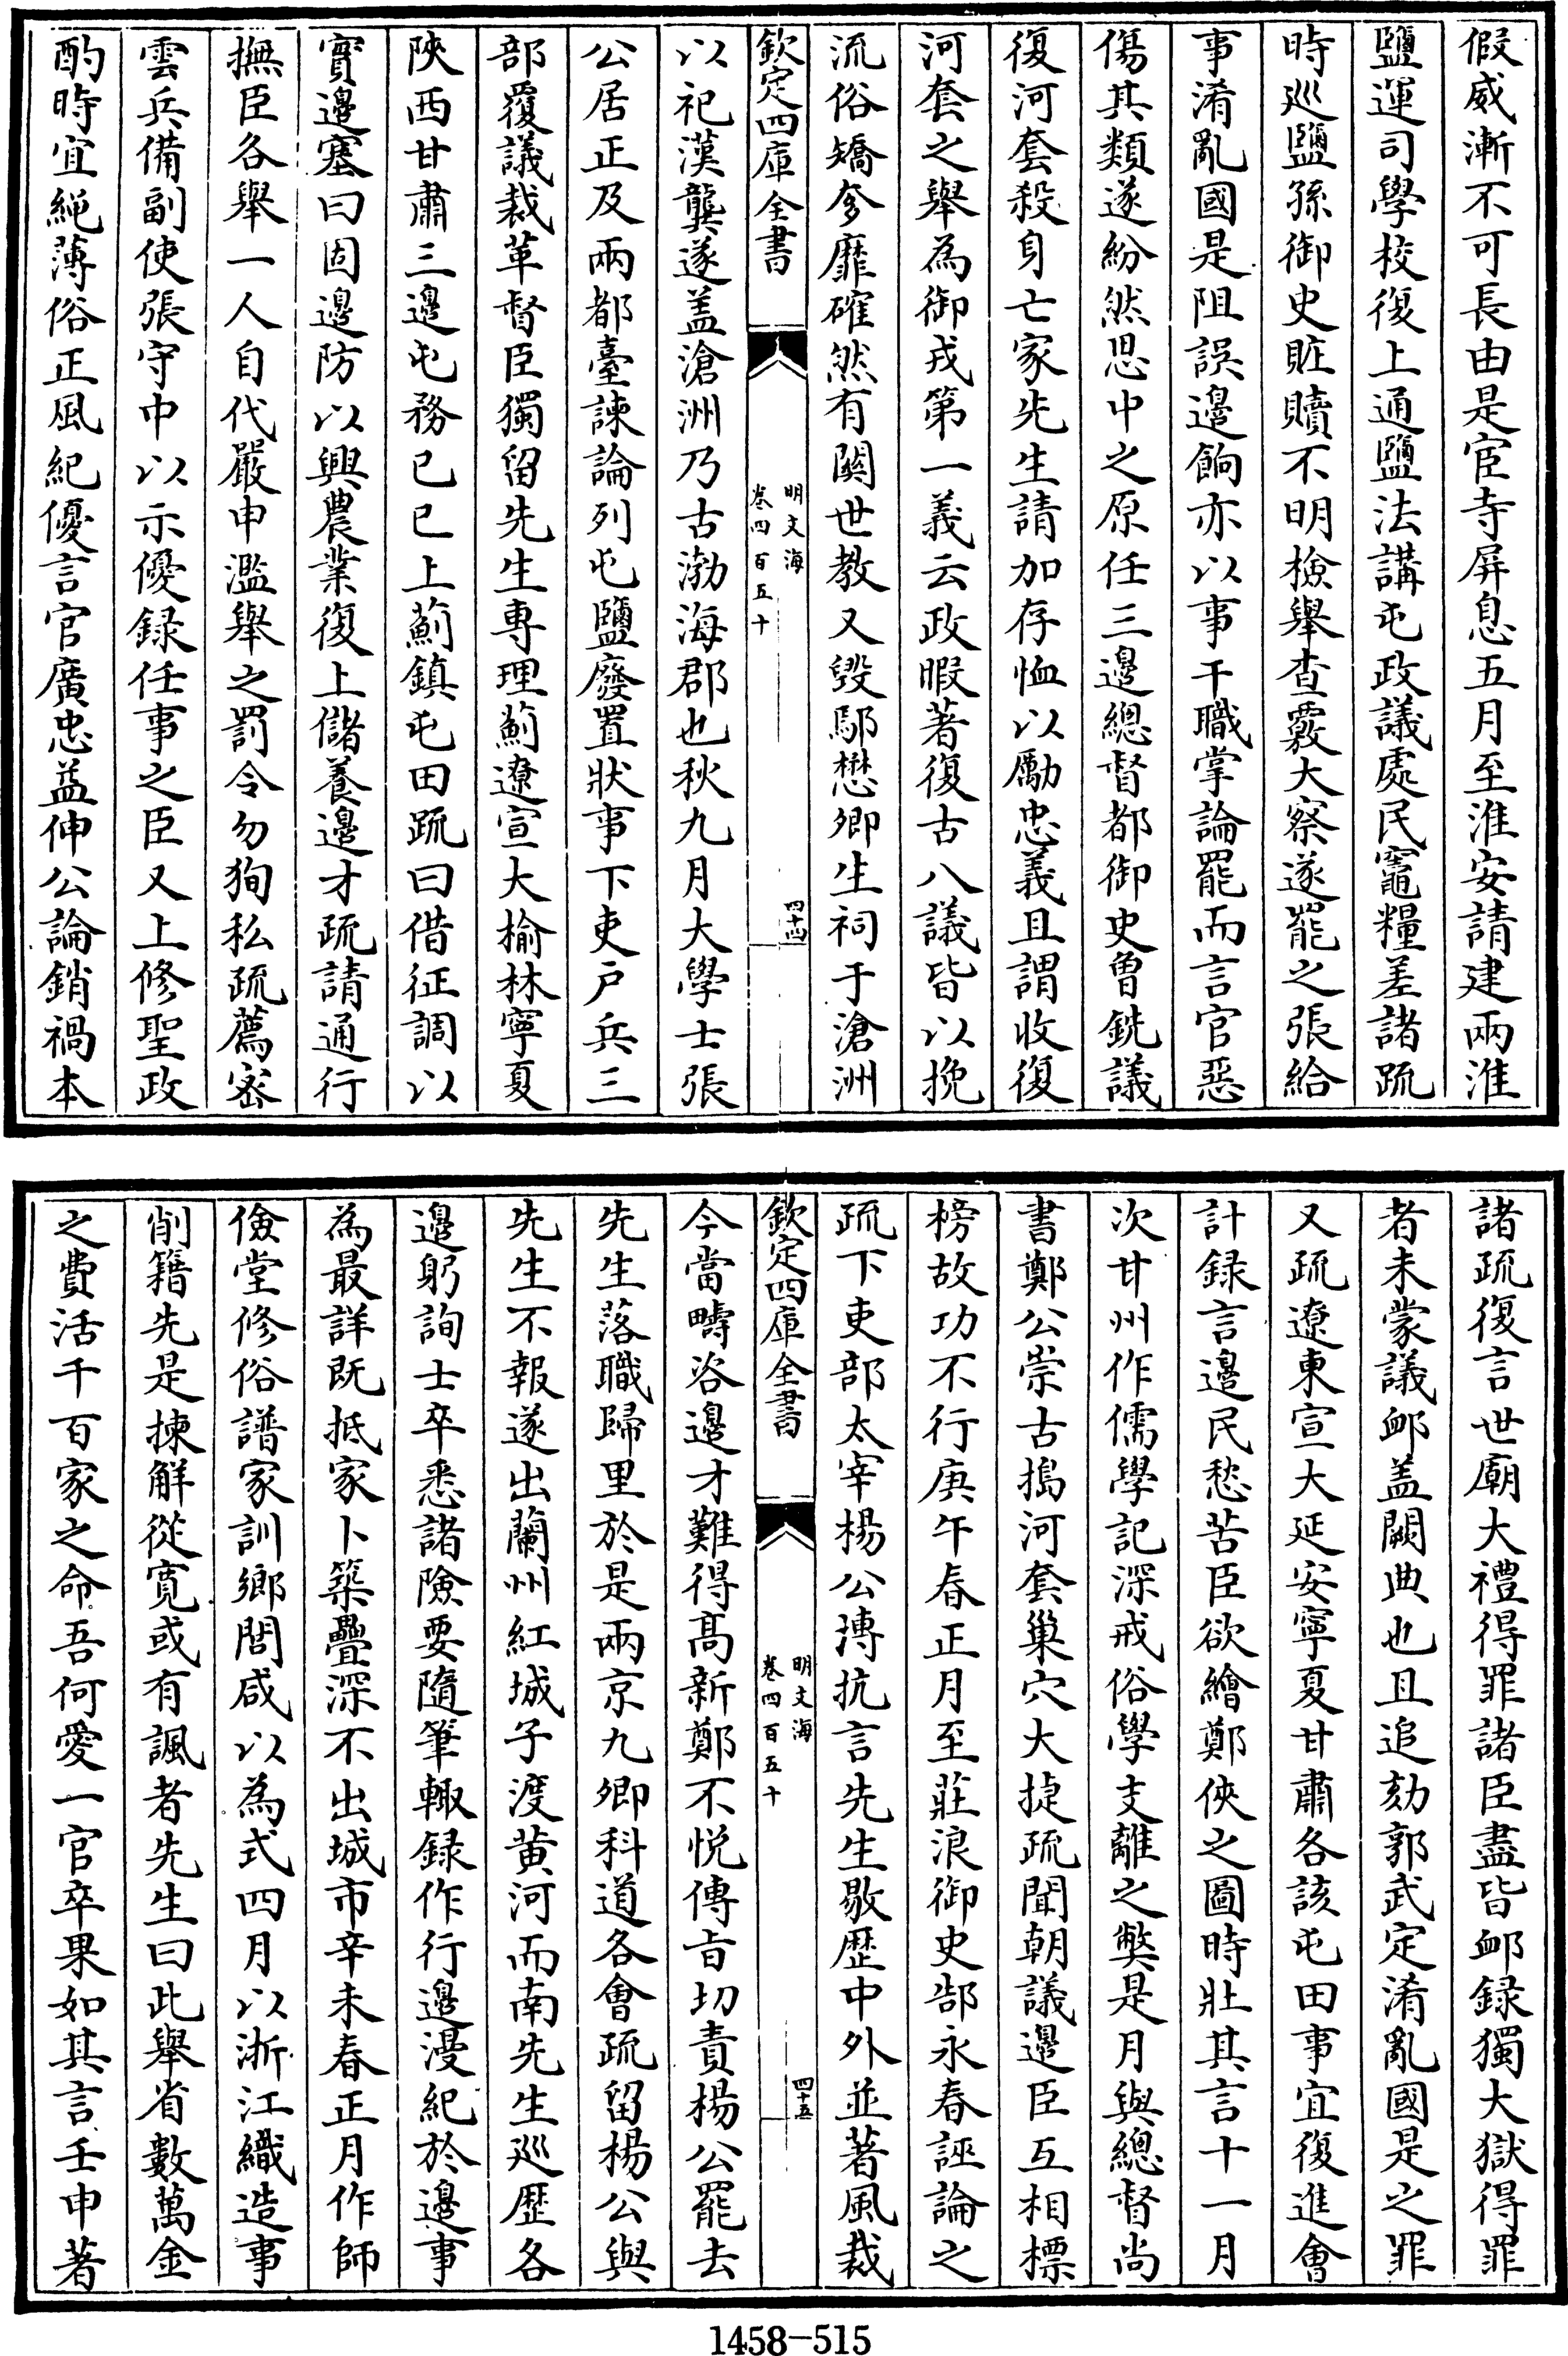 假威漸不可長由是宦寺屏息五月至淮安請建兩淮
鹽運司學校復上通鹽法講屯政議處民竈糧差諸疏
時巡鹽孫御史賍贖不明檢舉查覈大察遂罷之張給
事淆亂國是阻誤邊餉亦以事干職掌論罷而言官惡
傷其類遂紛然思中之原任三邊總督都御史曾銑議
復河套殺身亡家先生請加存恤以勵忠義且謂收復
河套之舉為御戎第一義云政暇著復古八議皆以挽
流俗矯奓靡確然有關世教又毀鄢懋卿生祠于滄洲
欽定四庫全書
明文海
卷四百五十
四十四
以祀漢龔遂盖滄洲乃古渤海郡也秋九月大學士張
公居正及兩都臺諫論列屯鹽廢置狀事下吏戶兵三
部覆議裁革督臣獨留先生專理薊遼宣大榆林寧夏
陜西甘肅三邊屯務已巳上薊鎮屯田疏曰借征調以
實邊塞曰固邊防以興農業復上儲養邊才疏請通行
撫臣各舉一人自代嚴申濫舉之罰令勿狥私疏薦密
雲兵備副使張守中以示優録任事之臣又上修聖政
酌時宜繩薄俗正風紀優言官廣忠益伸公論銷禍本
諸疏復言世廟大禮得罪諸臣盡皆卹録獨大獄得罪
者未蒙議卹盖闕典也且追劾郭武定淆亂國是之罪
又疏遼東宣大延安寧夏甘肅各該屯田事宜復進會
計録言邊民愁苦臣欲繪鄭俠之圖時壯其言十一月
次甘州作儒學記深戒俗學支離之弊是月與總督尚
書鄭公崇古搗河套巢穴大捷疏聞朝議邊臣互相標
榜故功不行庚午春正月至莊浪御史郜永春誣論之
疏下吏部太宰楊公博抗言先生敭歴中外並著風裁
欽定四庫全書
明文海
卷四百五十
四十五
今當疇咨邊才難得髙新鄭不悦傳旨切責楊公罷去
先生落職歸里於是兩京九卿科道各會疏留楊公與
先生不報遂出蘭州紅城子渡黄河而南先生巡歴各
邊躬詢士卒悉諸險要隨筆輙録作行邊漫紀於邊事
為最詳既抵家卜築疊深不出城市辛未春正月作師
儉堂修俗譜家訓鄉閭咸以為式四月以淅江織造事
削籍先是揀解從寛或有諷者先生曰此舉省數萬金
之費活千百家之命吾何愛一官卒果如其言壬申著
1458-515